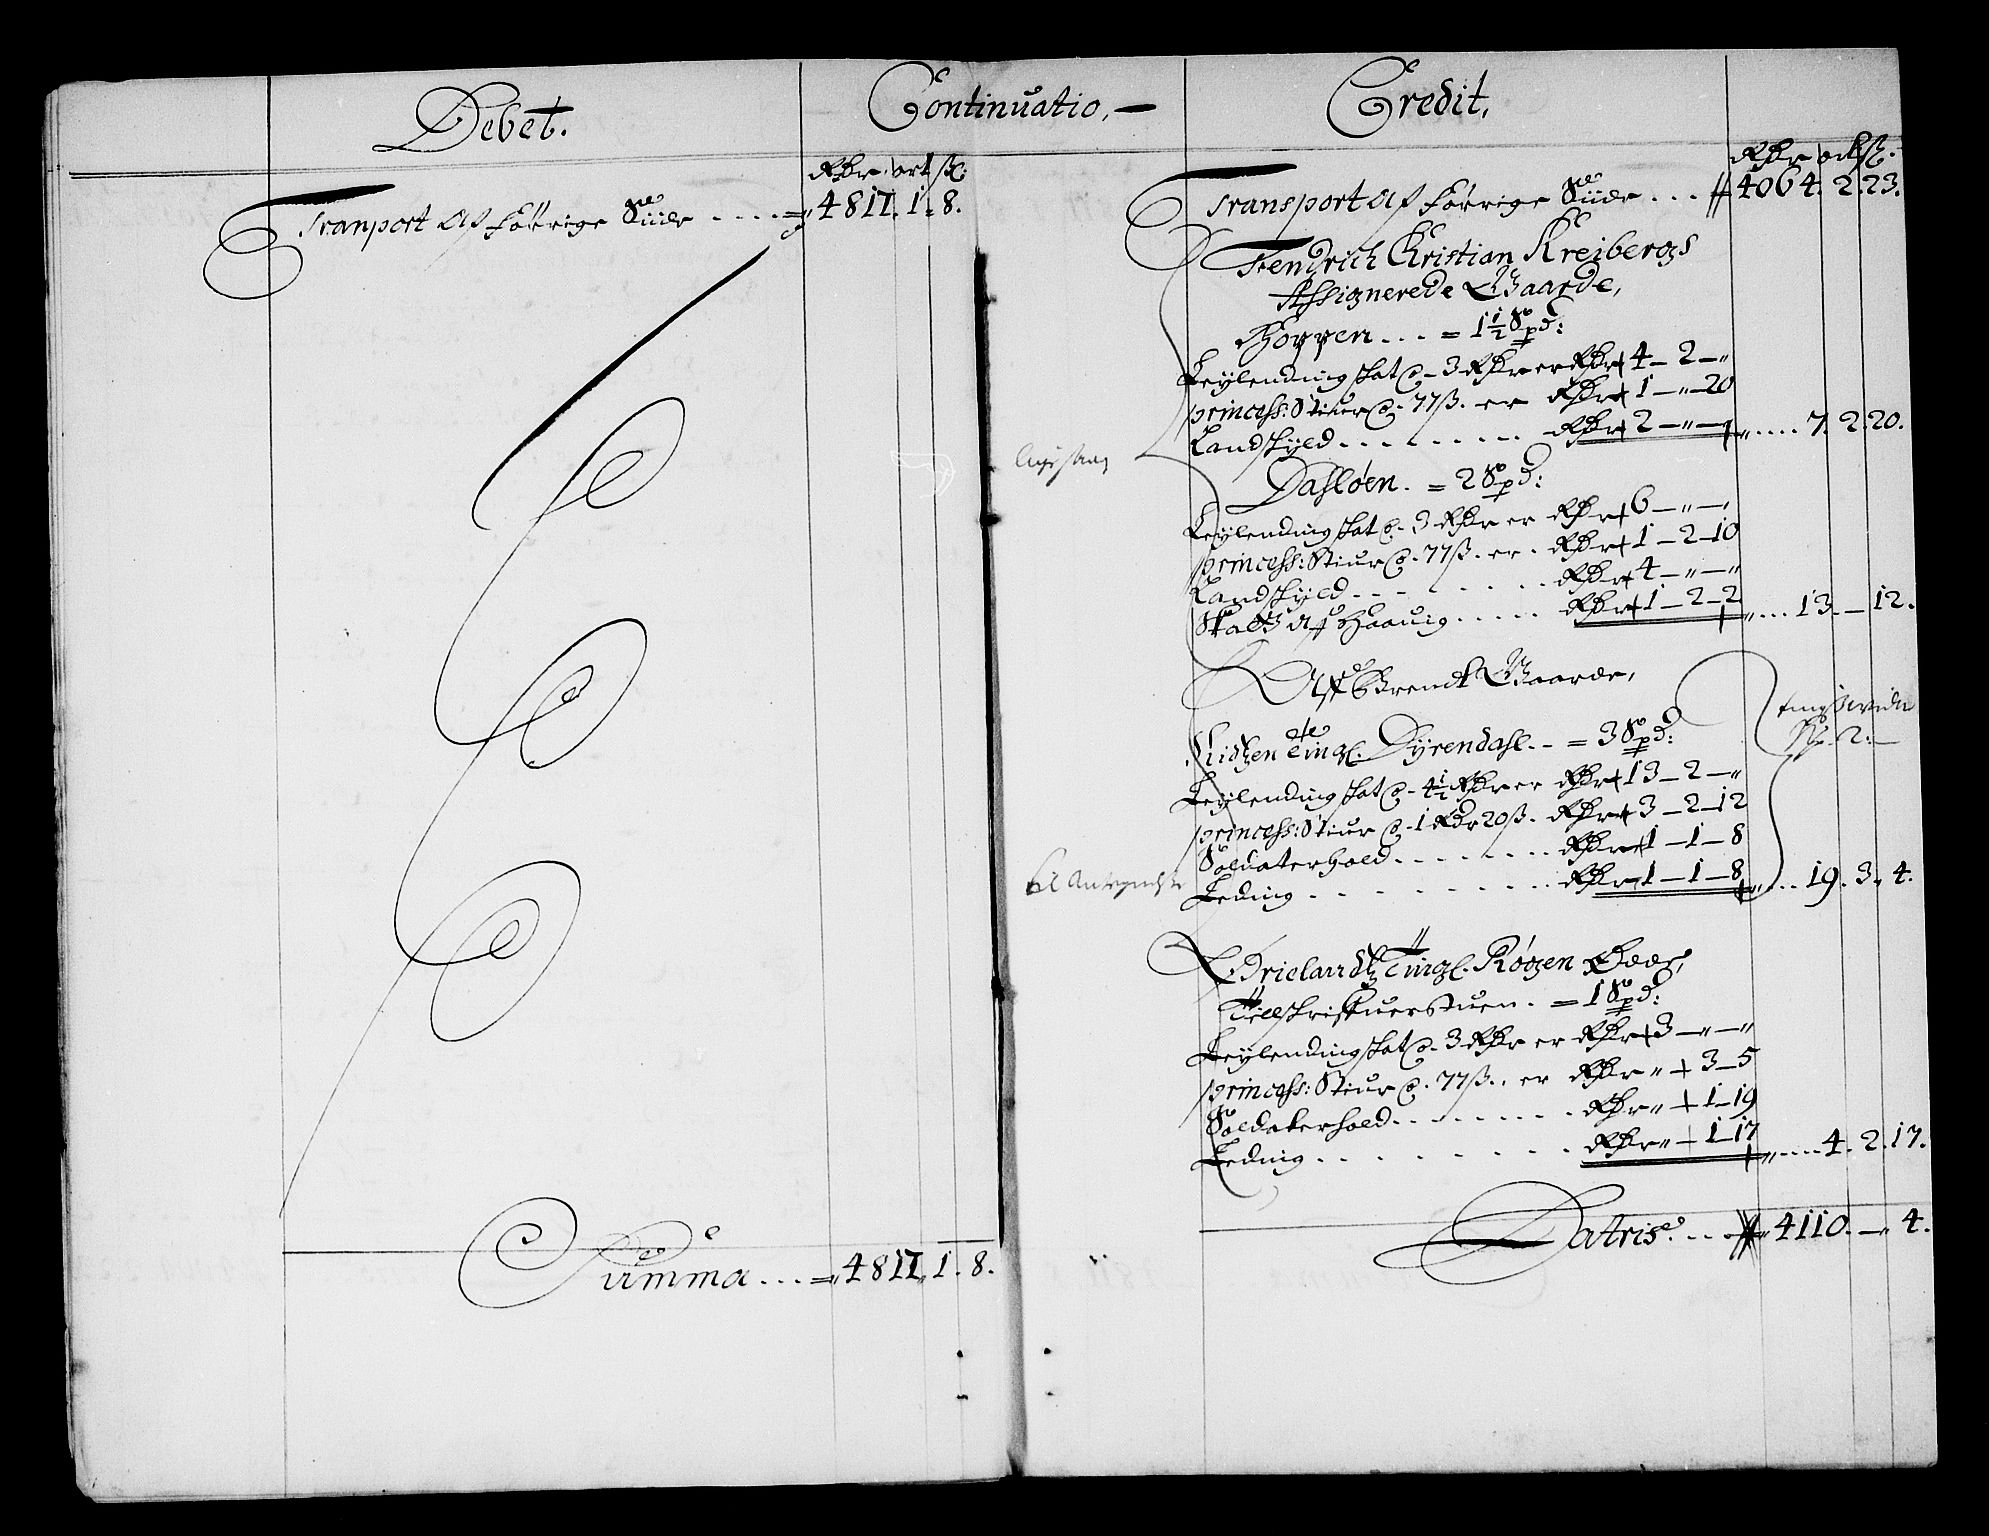 Debet.
Continuatio,
Rdr ort ß:
Tranport Af Forrige Siide .... = 4811. 1. 8.
Summa ... = 4811. 1. 8.
Credit.
Rdr ort ß.
Transport Af Forrige Siide ... 4064. 2. 23.
Fendrich Christian Kreibergs
Assignerede Gaarde,
Hoppen ... = 1½ Spd:
Leylending skat @ 3 Rdr er Rdr 4 - 2 - "
princess: Stiur @ 77 ß. er Rdr 1 - " - 20
Landskyld ......... Rdr 2 - " - " .... 7. 2. 20.
Dahløen. = 2 Spd:
Leylending skat @ 3 Rdr er Rdr 6 - " - "
princess: Stiur @ 77 ß. er. Rdr 1 - 2 - 10
Landskyld ........ Rdr 4 - " - "
Skatt Af Haauig ..... Rdr 1 - 2 - 2 .... 13. - 12.
Aff Brendt Gaarde,
Tingl. Dyrendahl. - = 3 Spd:
Leylending skat @ 4½ Rdr er Rdr 13 - 2 - "
princess: Stiur @ 1 Rdr 20 ß. Rdr 3 - 2 - 12
Soldaterhold ........ Rdr 1 - 1 - 8
Leding .......... Rdr 1 - 1 - 8 .... 19. 3. 4.
Tingl. Røgen
= 1 Spd:
Leylending skat @ 3 Rdr er Rdr 3 - " - "
princess: Stiur @ 77 ß.. er Rdr " 3 - 5
Soldaterhold ........ Rdr " 1 - 19
Leding ......... Rdr " 1 - 17 .... 4. 2. 17.
Latris ... 4110. - 4.